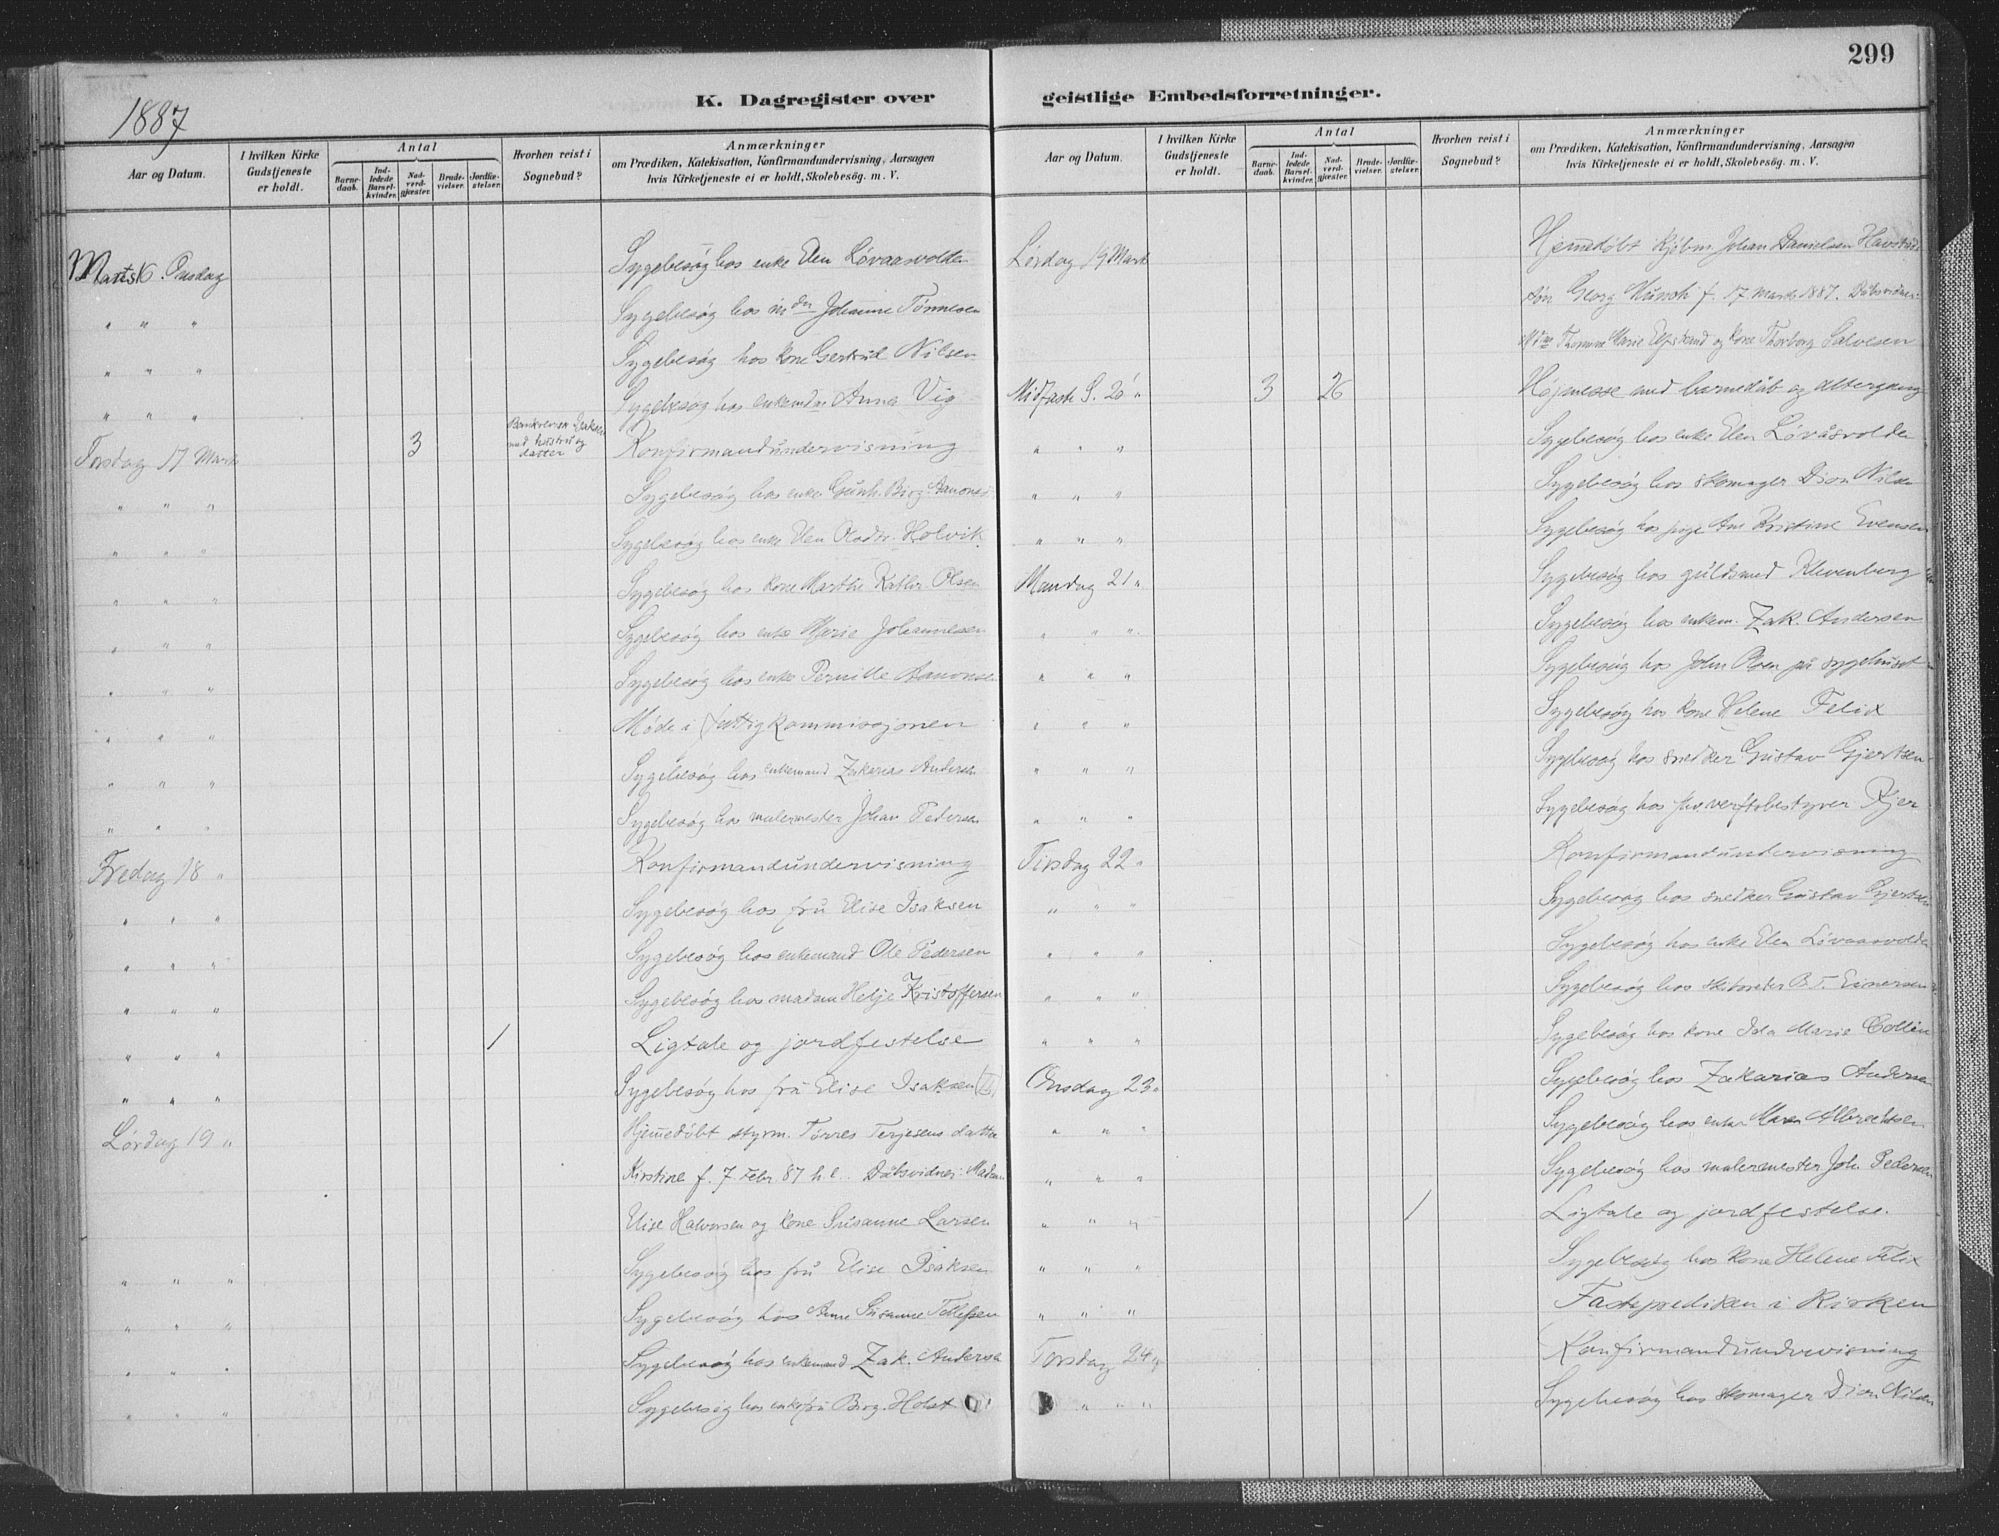 299
K. Dagregister over geistlige Embedsforretninger.
1887
Aar og Datum.
I hvilken Kirke Gudstjeneste er holdt.
Antal
Barnedaab.
Indledede Barselkvinder.
Nadverdgjæster.
Brudevielser.
Jordfæstelser.
Hvorhen reist i Sognebud?
Anmærkninger
om Prædiken, Katekisation, Konfirmandundervisning, Aarsagen
hvis Kirketjeneste ei er holdt, Skolebesög. m. V.
Marts 16. Onsdag Sygebesøg hos enke Elen Løvaasvolden
" " " Sygebesøg hos Johanne Tønnesen
" " " Sygebesøg hos kone Gertrud Nilsen
" " " Sygebesøg hos Anne Vig
Torsdag 17 Marts 3 med hustru og datter Konfirmandundervisning
" " " Sygebesøg hos enke Gunh. Birg. Aanonsen
" " " Sygebesøg hos enke Elen Holvik
" " " Sygebesøg hos kone Marthe Kathr. Olsen
" " " Sygebesøg hos enke Marie Johannesen
" " " Sygebesøg hos enke Pernille Aanonsen
" " " Møde i fattigkommissjonen
" " " Sygebesøg hos enkemand Zakarias Andersen
" " " Sygebesøg hos malermester Johan Pedersen
Fredag 18 " Konfirmandundervisning
" " " Sygebesøg hos fru Elise Isaksen
" " " Sygebesøg hos enkemand Ole Pedersen
" " " Sygebesøg hos madam Helje Kristoffersen
" " " 1 Ligtale og jordfestelse
" " " Sygebesøg hos fru Elise Isaksen
Lørdag 19 " Hjemmedøbt styrm. Tørres Terjesens datter
Kirstine f. 7 Febr 87 Dåbsvidner: Madam
Elise Halvorsen og kone Susanne Larsen
" " " Sygebesøg hos fru Elise Isaksen
" " " Sygebesøg hos Anne Susanne Tellefsen
" " " Sygebesøg hos enkemand Zak. Andersen
" " " Sygebesøg hos enkefru Birg. Holst
Aar og Datum.
I hvilken Kirke Gudstjeneste er holdt.
Antal
Barnedaab.
Indledede Barselkvinder.
Nadverdgjæster.
Brudevielser.
Jordfæstelser.
Hvorhen reist i Sognebud?
Anmærkninger
om Prædiken, Katekisation, Konfirmandundervisning, Aarsagen
hvis Kirketjeneste ei er holdt, Skolebesög. m. V.
Lørdag 19 Marts Hjemmedøbt Kjøbm. Johan Danielsen
søn Georg Munch f. 17 Marts 1887. Dåbsvidner:
Marie og kone Thorborg Salvesen
Midfaste S. 20 " 3 26 Højmesse med barnedåb og altergang
" " " Sygebesøg hos enke Elen Løvåsvolden
" " " Sygebesøg hos skomager Dion Nilsen
" " " Sygebesøg hos pige Kristine Evensen
Mandag 21 " Sygebesøg hos guldsmed Klevenberg
" " " Sygebesøg hos enkem. Zak. Andersen
" " " Sygebesøg hos John Olsen på sygehuset
" " " Sygebesøg hos kone Helene Felix
" " " Sygebesøg hos snedker Gustav Gjertsen
" " " Sygebesøg hos verftsbestyrer Kjer
Tirsdag 22 " Konfirmandundervisning
" " " Sygebesøg hos snedker Gustav Gjertsen
" " " Sygebesøg hos enke Elen Løvaasvolden
" " " Sygebesøg hos skibsreder B. T. Einersen
" " " Sygebesøg hos kone Ida Marie Collin
Onsdag 23 " Sygebesøg hos Zakarias Andersen
" " " Sygebesøg hos enke Maren Albrechtsen
" " " Sygebesøg hos malermester Joh. Pedersen
" " " 1 Ligtale og jordfestelse.
" " " Sygebesøg hos kone Helene Felix
" " " Fasteprediken i Kirken
Torsdag 24 " Konfirmandundervisning
" " " Sygebesøg hos skomager Dion Nilsen